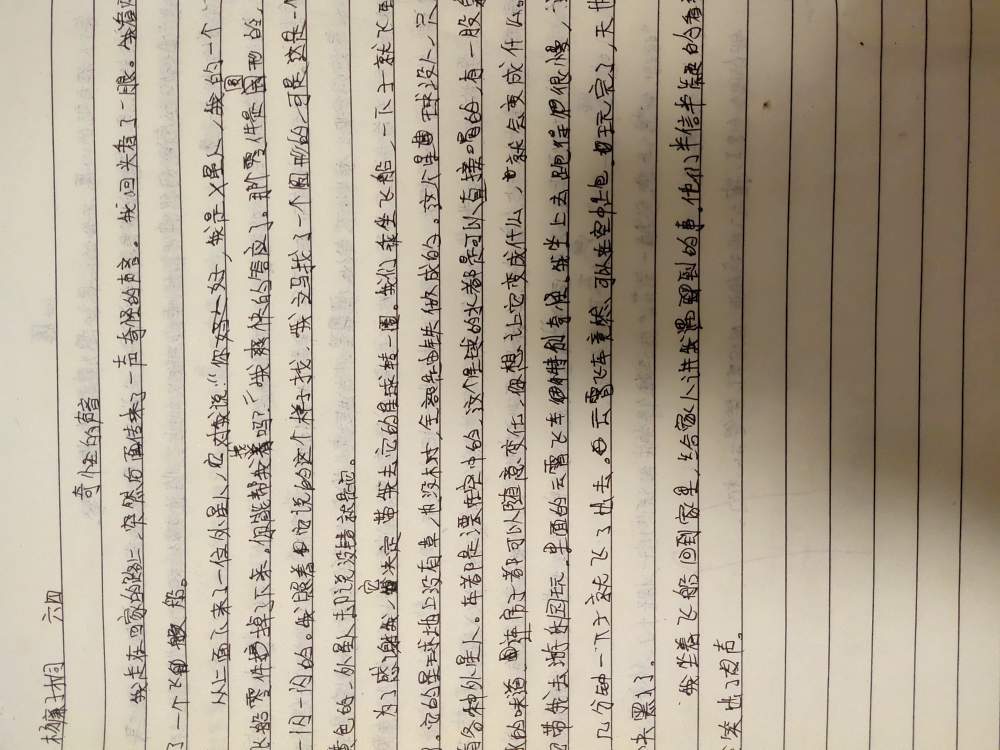 杨豫桐 六四
奇怪的声音
我走在回家的路上，突然后面传来了一声奇怪的声音。我回头看了一眼。我看
了一个飞船。
从上面下来了一位外星人，它对我说：“你好，我是外星人，我的一个
飞船零件掉了下来。你能帮我找着吗？”我爽快的答应了。那个零件是圆形的，
闪一闪的。我照着它说的这个样子找，我立马找了一个圆形的，可是，这是一
黄色的，外星人却说没错就是它。
为了感谢我，它决定带我去它的星球转一圈。我们乘坐飞船，一下子就飞
。它的星球地上没有草，也没木材，全部是由铁做成的。这个星球没人，只
有各种外星人。车都是漂在空中的，这个星球的水都是可以直接喝的，有一股
的味道，连房子都可以随意变任，你想让它变成什么，就会变成什么。
带我去游乐园玩，里面的云霄飞车特别奇怪。我坐上去跑得很慢，
几分钟一下子就飞了出去。云霄飞车竟然可以在空中。玩完了，天
快黑了。
我坐着飞船回到家里，给家人讲我遇到的事，他们半信半疑的看着
笑出了声。